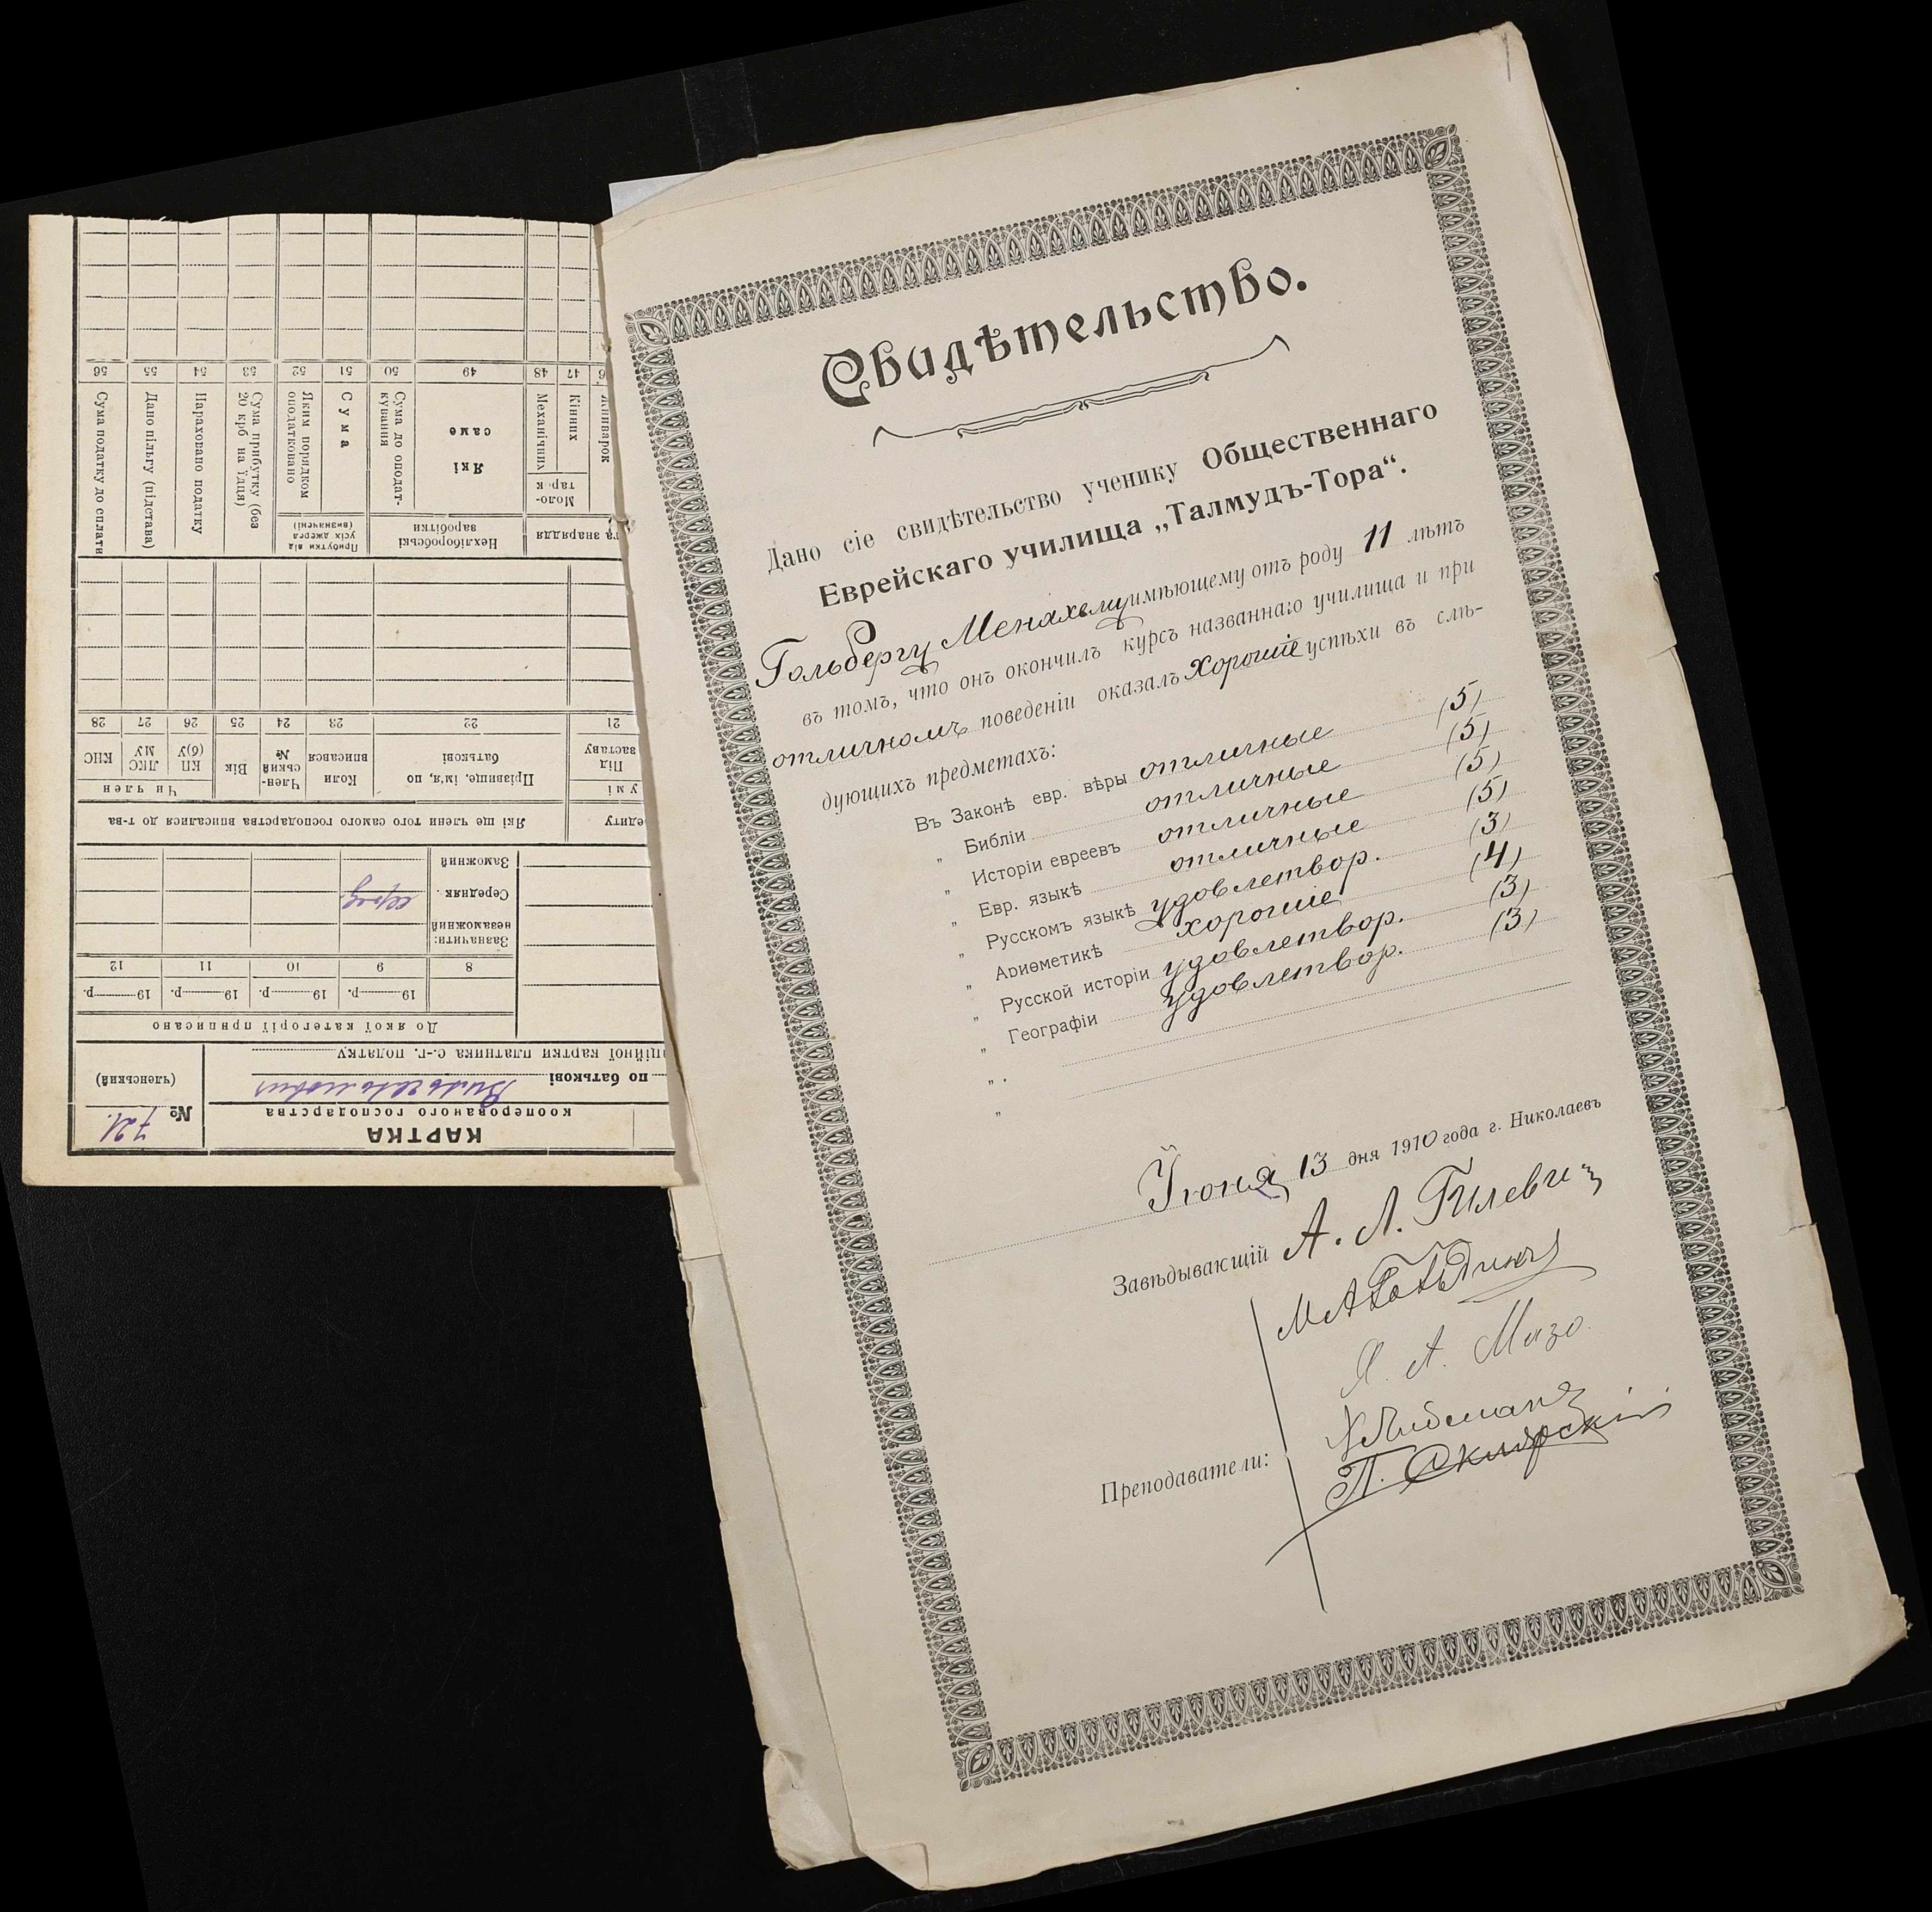 Свидѣтельство.
Дано сіе свидѣтельство ученику Общественнаго
Еврейскаго училища „Талмудъ-Тора“.
Гольбергу Менахему имѣющему отъ роду 11 лѣтъ
въ томъ, что онъ окончилъ курсъ названнаго училища и при
отличномъ поведеніи оказалъ хорошіе успѣхи въ слѣ-
дующихъ предметахъ:
Въ Законѣ евр. вѣры отличные (5)
„ Библіи отличные (5)
„ Исторіи евреевъ отличные (5)
„ Евр. языкѣ отличные (5)
„ Русскомъ языкѣ удовлетвор. (3)
„ Ариѳметикѣ хорошіе (4)
„ Русской исторіи удовлетвор. (3)
„ Географіи удовлетвор. (3)
„
„
Іюня 13 дня 1910 года г. Николаевъ
Завѣдывающій А. Л. Гилевич
Преподаватели:
Я. А. Мазо.
П. Склярскій
КАРТКА
кооперованого господарства
№ 721.
(членський)
по батькові
аційної картки платника с.-г. податку
До якої категорії приписано
19 р. 19 р. 19 р. 19 р.
8 9 10 11 12
Зазначити:
незаможний
Середняк серед
Заможний
редиту
Які ще члени того самого господарства вписалися до т-ва
умі
Під заставу
Прізвище, ім'я, по батькові
Коли вписався
Член-ський №
Вік
Чи член
КП (б)У
ЛКС МУ
КНС
21 22 23 24 25 26 27 28
та знаряддя
Нехліборобські заробітки
Прибутки від усіх джерел (визначені)
Кінних
Моло-тарк
Механічних
Які саме
Сума до оподат-кування
Сума
Яким порядком оподатковано
Сума прибутку (без 20 крб на їдця)
Нараховано податку
Дано пільгу (підстава)
Сума податку до сплати
47 48 49 50 51 52 53 54 55 56